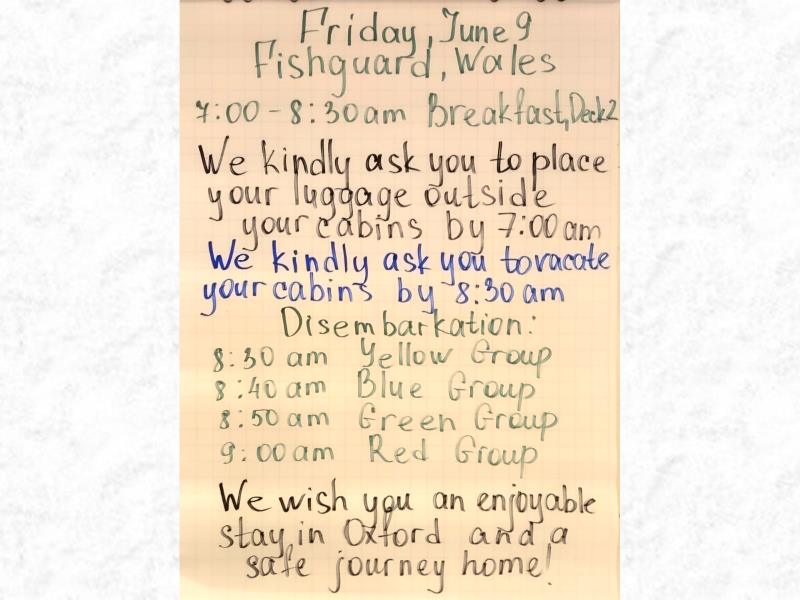 Friday, June 9
Fishguard, Wales
7:00 - 8:30 am Breakfast, Deck 2
We kindly ask you to place
your luggage outside
your cabins by 7:00 am
We kindly ask you to vacate
your cabins by 8:30 am
Disembarkation:
8:30 am Yellow Group
8:40 am Blue Group
8:50 am Green Group
9:00 am Red Group
We wish you an enjoyable
stay in Oxford and a
safe journey home!